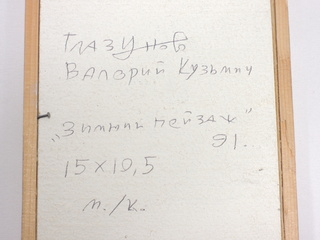 Глазунов
Валерий Кузьмич
"Зимний пейзаж"
91.
15х10,5
м./к.